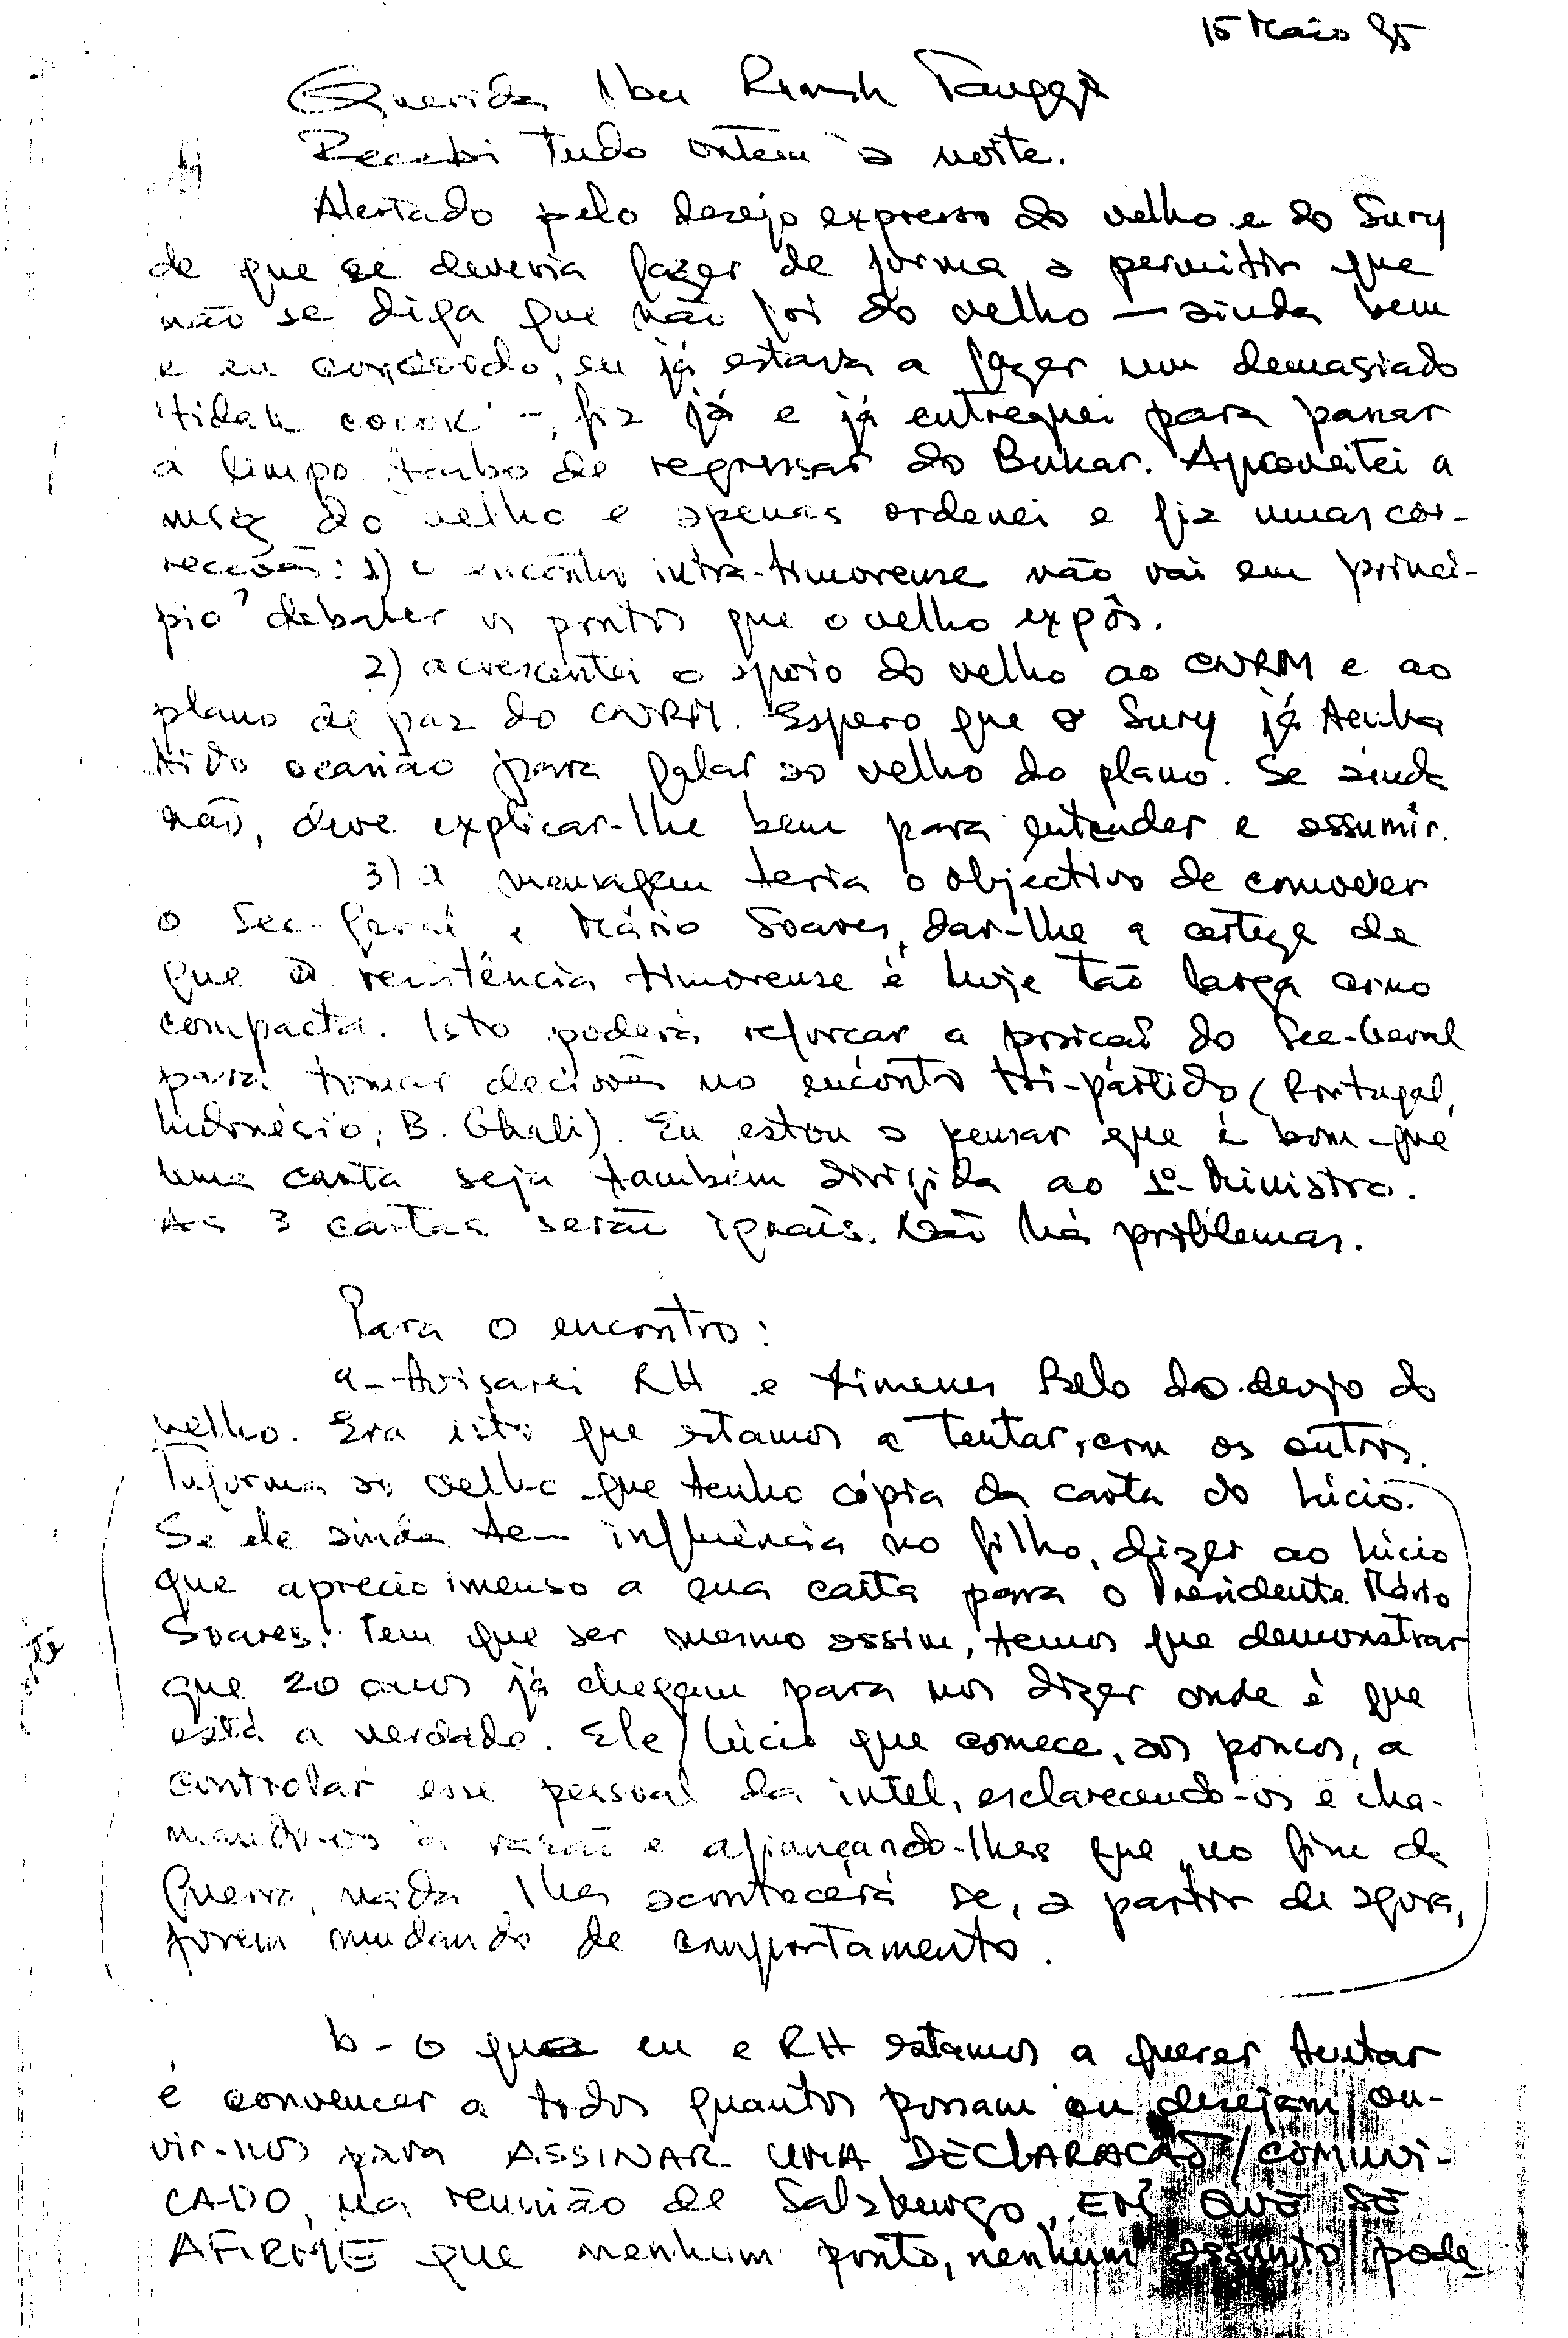 15 Maio 95
Querida Ibu Rumah Tangga
Recebi tudo ontem à noite.
Alertado pelo desejo expresso do velho e do Sury
de que se deveria fazer de forma a permitir que
não se diga que não foi do velho — ainda bem
e eu concordo, eu já estava a fazer um demasiado
'tidak cocok' -, fiz já e já entreguei para passar
a limpo. Acabo de regressar do Bukar. Aproveitei a
msg do velho e apenas ordenei e fiz umas cor-
recções: 1) o encontro intra-timorense não vai em princí-
pio debater os pontos que o velho expôs.
2) acrescentei o apoio do velho ao CNRM e ao
plano de paz do CNRM. Espero que o Sury já tenha
tido ocasião para falar ao velho do plano. Se ainda
não, deve explicar-lhe bem para entender e assumir.
3) a mensagem teria o objectivo de comover
o Sec-Geral e Mário Soares, dar-lhe a certeza de
que a resistência timorense é hoje tão larga como
compacta. Isto poderá reforçar a posição do Sec-Geral
para tomar decisões no encontro tri-partido (Portugal,
Indonésia, B. Ghali). Eu estou a pensar que é bom que
uma carta seja também dirigida ao 1º Ministro.
As 3 cartas serão iguais. Não há problemas.
Para o encontro:
a- Avisarei RH e Ximenes Belo do desejo do
velho. Era isto que estamos a tentar, com os outros.
Informa ao velho que tenho cópia da carta do Lúcio.
Se ele ainda tem influência no filho, dizer ao Lúcio
que aprecio imenso a sua carta para o Presidente Mário
Soares. Tem que ser mesmo assim, temos que demonstrar
que 20 anos já chegam para nos dizer onde é que
está a verdade. Ele/Lúcio que comece, aos poucos, a
controlar esse pessoal da intel, esclarecendo-os e cha-
mando-os à razão e afiançando-lhes que, no fim da
guerra, nada lhes acontecerá se, a partir de agora,
forem mudando de comportamento.
b- O que eu e RH estamos a querer tentar
é convencer a todos quantos possam ou desejam ou-
vir-nos para ASSINAR UMA DECLARAÇÃO/COMUNI-
CADO, na reunião de Salzburgo, EM QUE SE
AFIRME que nenhum ponto, nenhum assunto pode